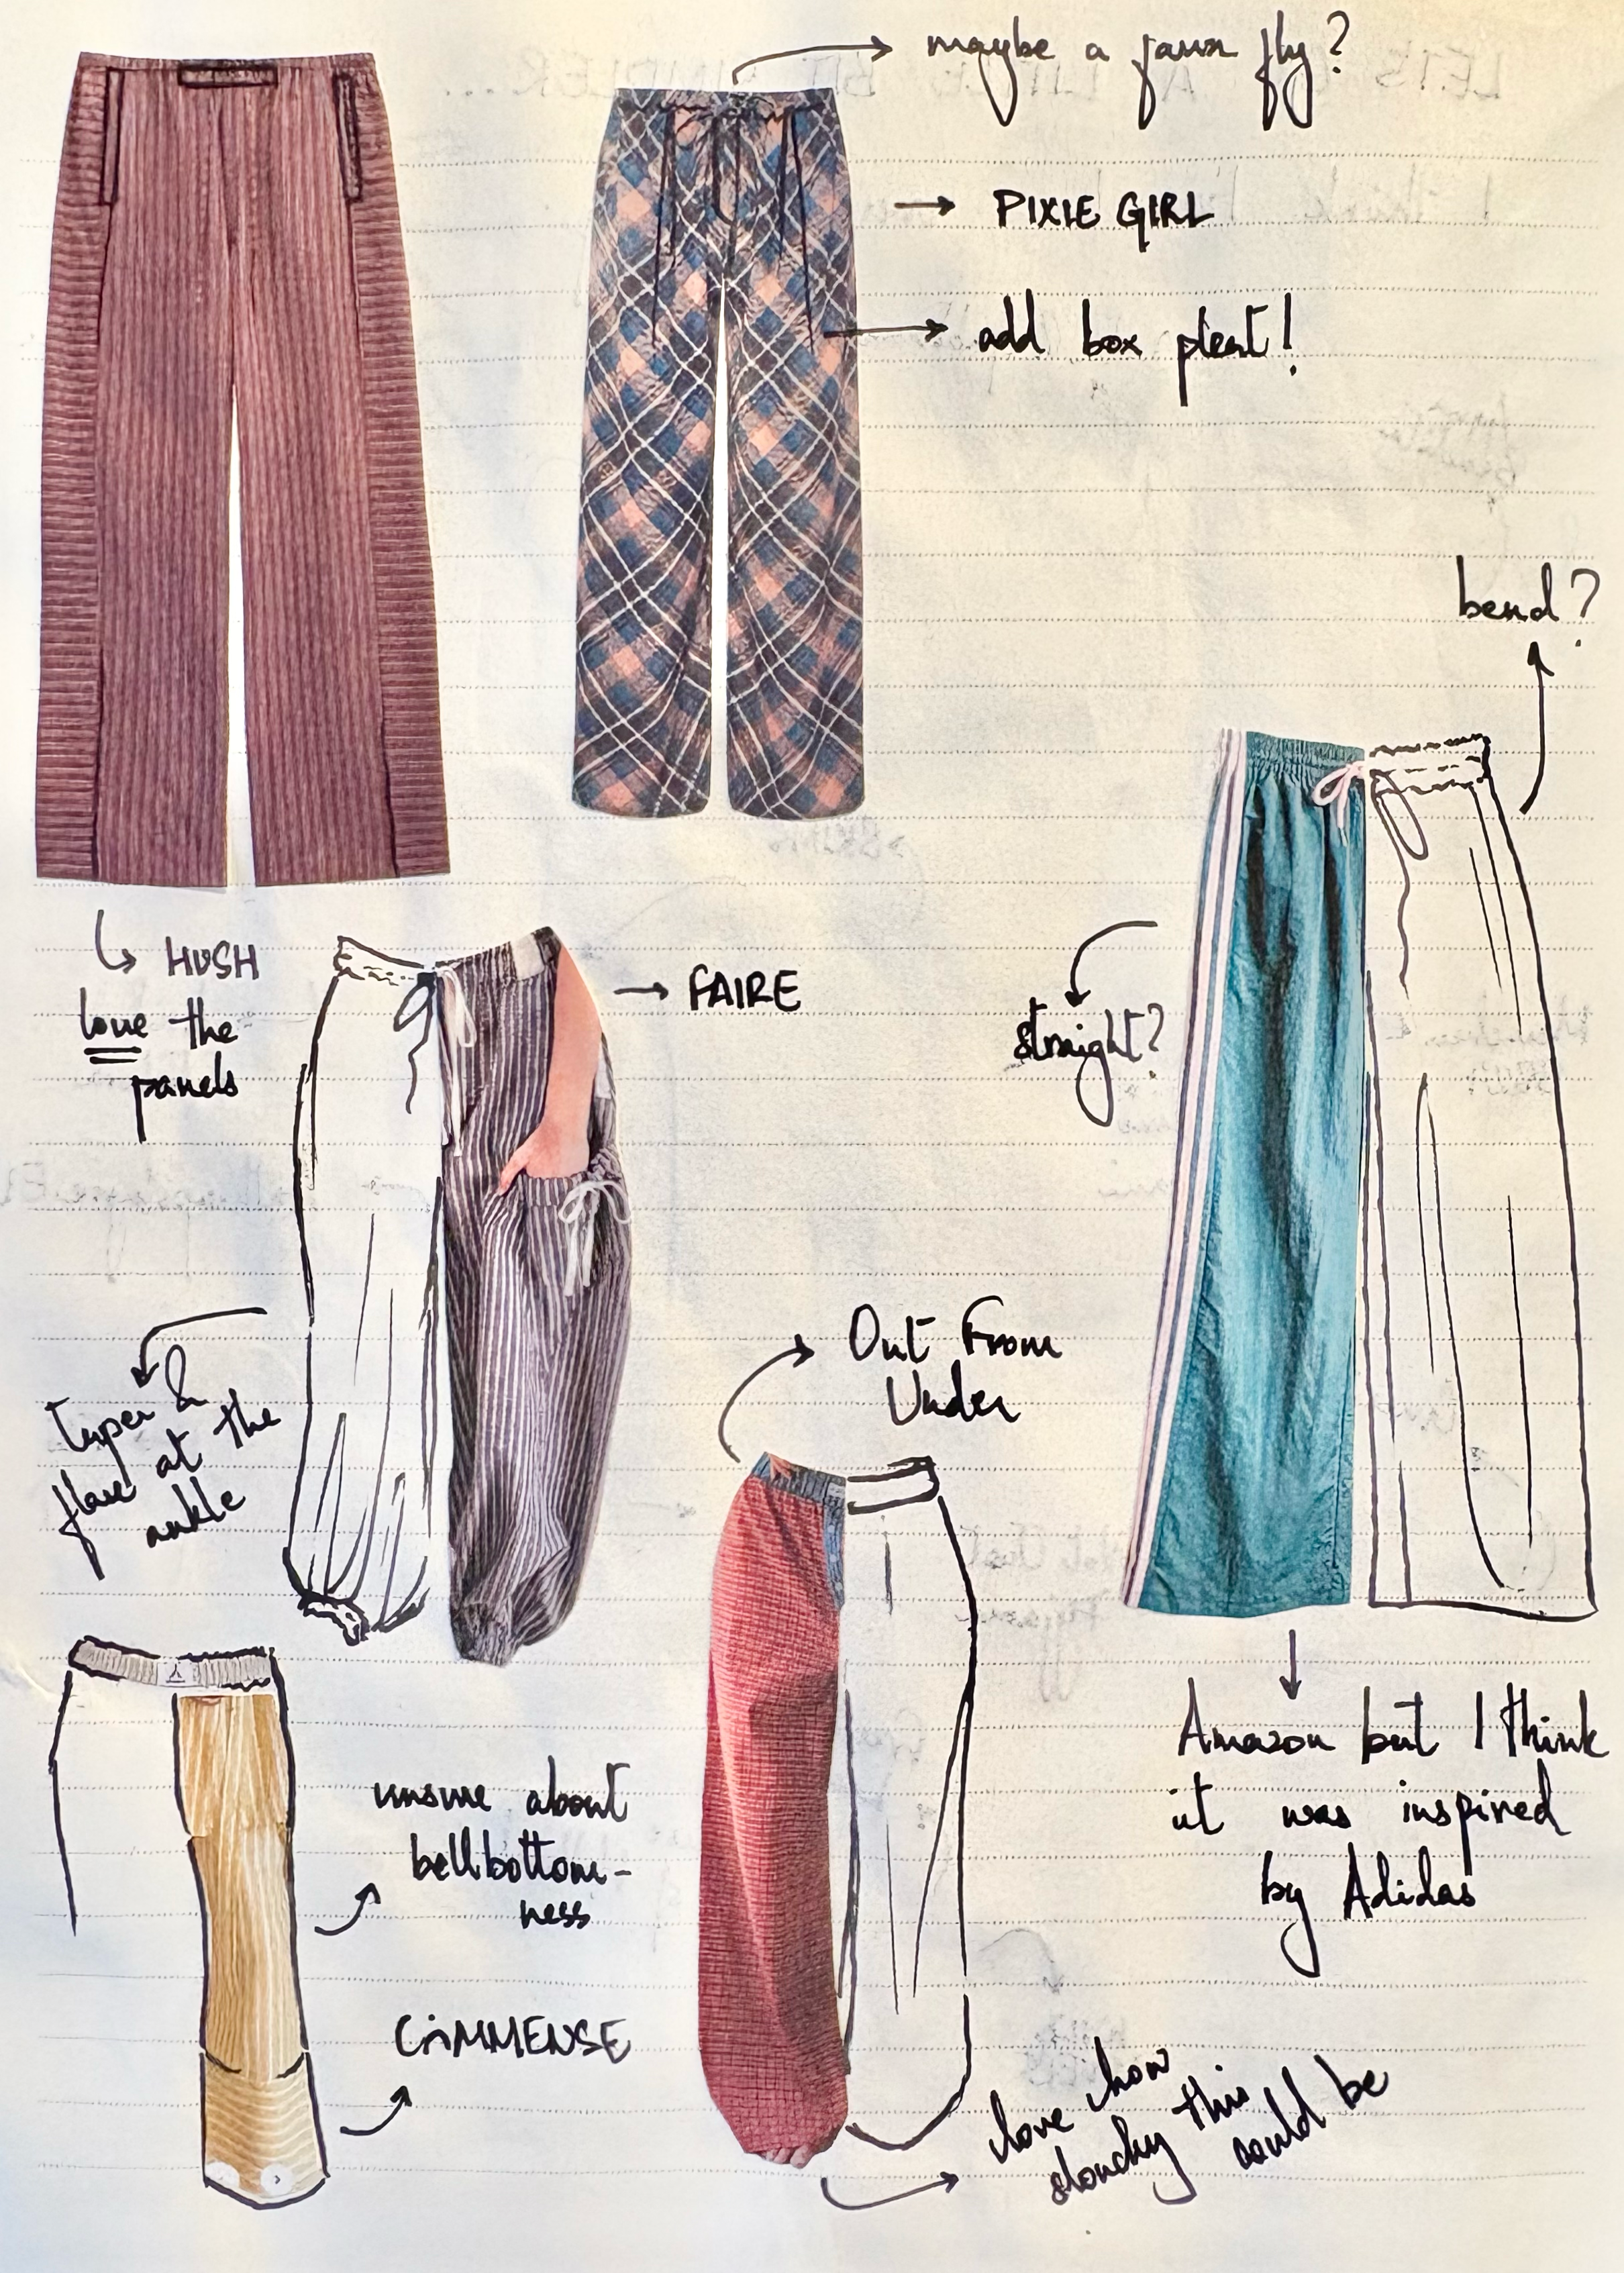 maybe a faux fly?
PIXIE GIRL
add box pleat!
bend?
HUSH
love the
panels
FAIRE
straight?
Out From
Under
Taper &
flare at the
ankle
Amazon but I think
it was inspired
by Adidas
unsure about
bellbottom-
ness
CIMMENSE
love how
slouchy this
could be